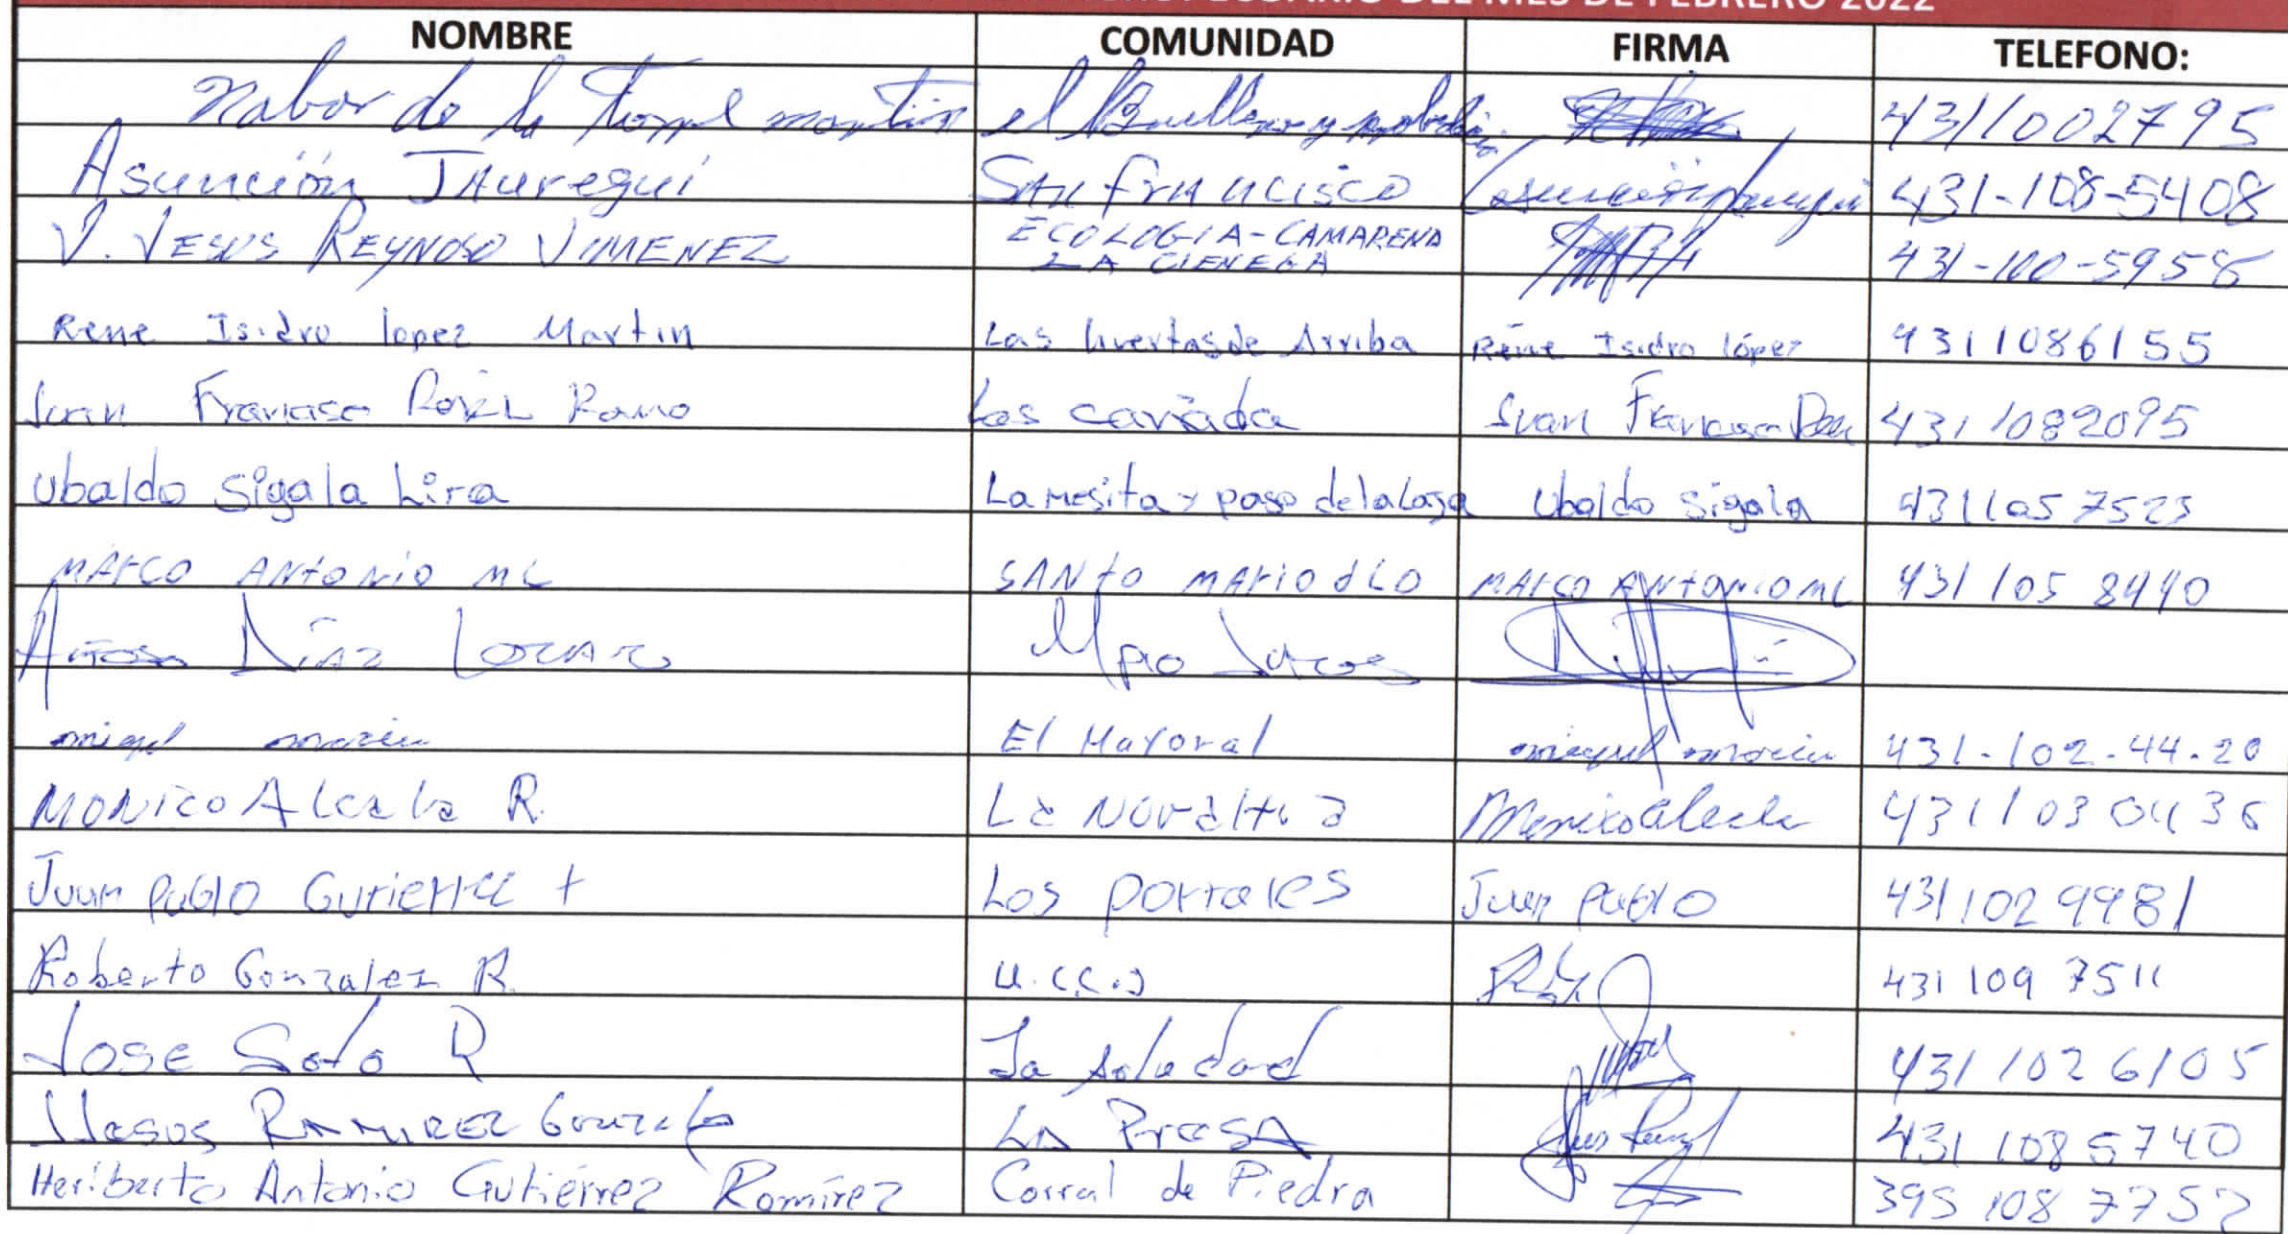 DEL MES DE FEBRERO 2022
NOMBRE COMUNIDAD FIRMA TELEFONO:
Nabor de la Torre martin el 4311002795
Asunción JAuregui SAn frAncisco 431-108-5408
J. JESUS REYNOSO JIMENEZ ECOLOGIA-CAMARENA 431-100-5958
LA CIENEGA
Rene Isidro lopez Martin Las huertas de Arriba Rene Isidro lópez 4311086155
Juan Francisco Ramo Las cañada Juan Francisco 4311082095
Ubaldo Sigala Lira La mesita y paso de la Ubaldo Sigala 4311057523
MArco ANtoNio ML SANto MAriO dLO MArco ANtoNio ML 431 105 8440
DíAz LozANo Mpio
miguel El Mayoral miguel 431-102-44-20
MONICO Alcala R. La Monico alcala
Juan Pablo Gutierrez t Los Portales Juan Pablo 431102 9981
Roberto Gonzalez R. U.C.C.J 431 109 7511
JOSE Soto R La soledad 431 102 6105
JJesus RAMIREZ Gonzalez LA PresA 431 108 5740
Heriberto Antonio Gutiérrez Ramírez Corral de Piedra 395 108 7752